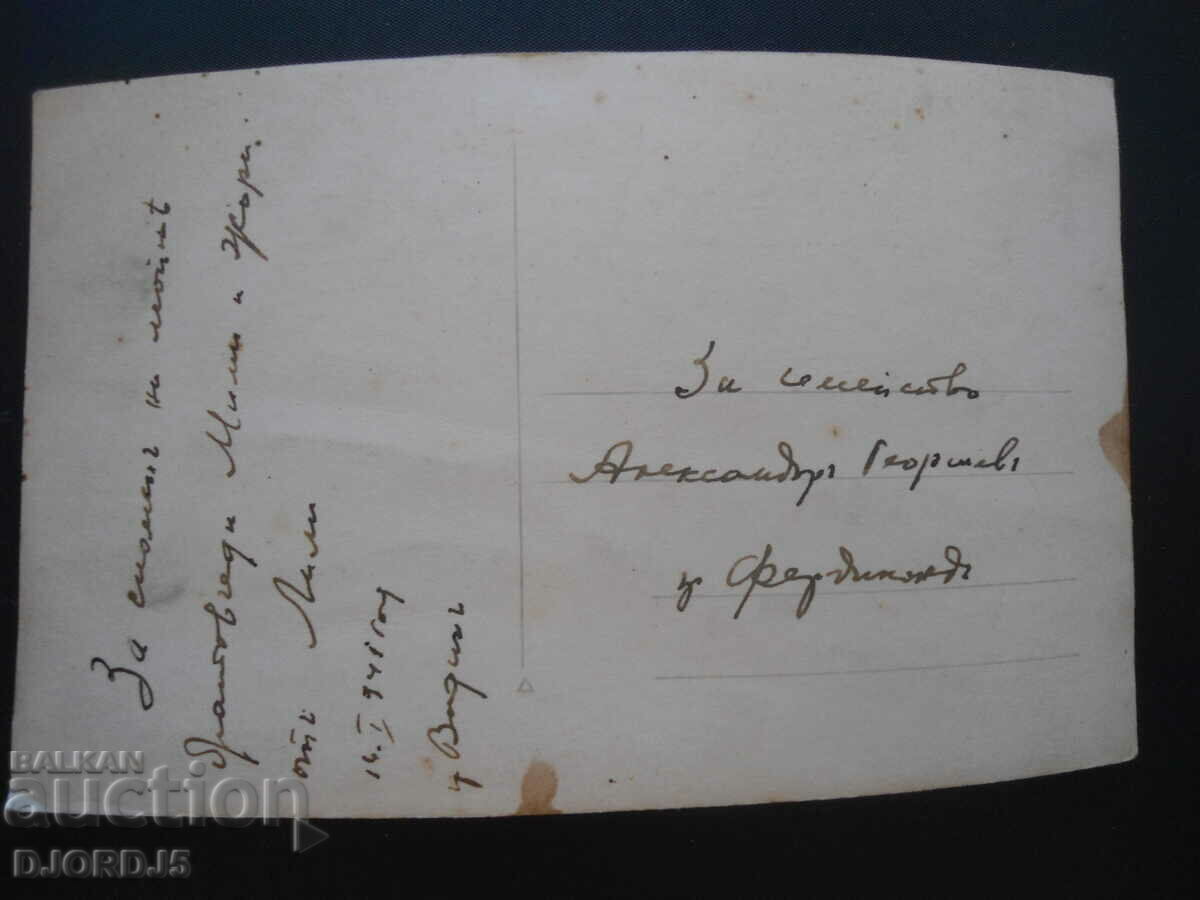 За споменъ на моитѣ
братовчеди Мими и Жори.
отъ Лили
14. I 941 год
гр Видинъ
За семейство
Александъръ Георгиевъ
гр Фердинандъ
BALKAN
auction
DJORDJ5